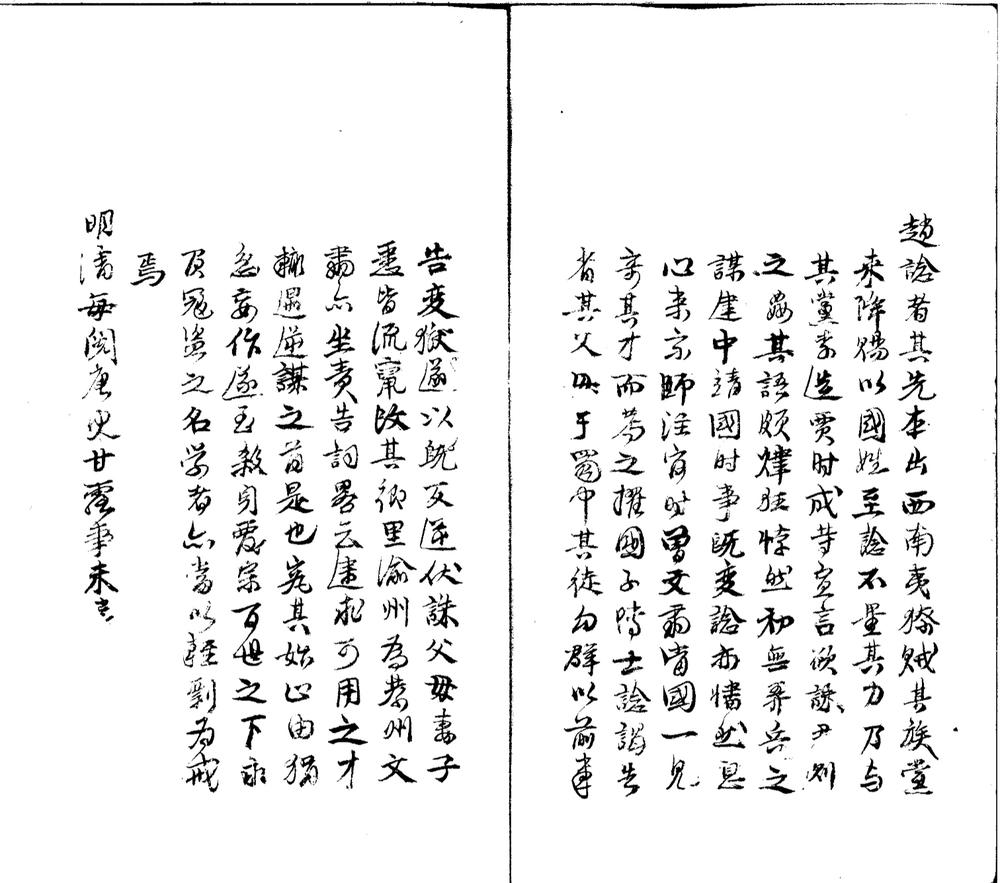 趙諗者其先本出西南夷獠賊其族黨
来降賜以國姓至諗不量其力乃与
其黨李造賈时成等宣言欲誅尹側
之姦其語頗肆狂悖然初無弄兵之
謀建中靖國时事既变諗亦幡然息
心来京師注官时曾文肅當國一見
奇其才而薦之擢國子博士諗謁告
省其父母于蜀中其徒勾群以前事
告变獄遂以既反逆伏誅父母妻子
悉皆流竄改其鄉里渝州為恭州文
肅亦坐責告詞畧云逮求可用之才
輒遇逆謀之首是也究其始止由狷
忿妄作遂至殺身覆宗百世之下永
負冦盗之名学者亦當以輕剽為戒
焉
明清每閱唐史甘露事未嘗